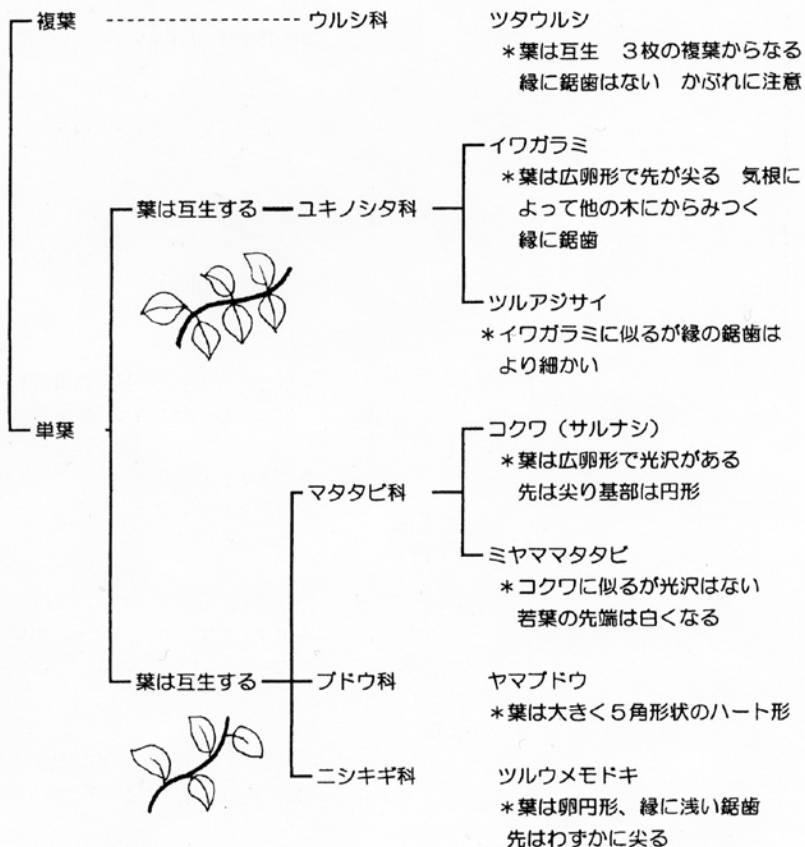 複葉 ウルシ科 ツタウルシ
＊葉は互生　３枚の複葉からなる
縁に鋸歯はない　かぶれに注意
イワガラミ
＊葉は広卵形で先が尖る　気根に
葉は互生する ユキノシタ科 よって他の木にからみつく
縁に鋸歯
ツルアジサイ
＊イワガラミに似るが縁の鋸歯は
より細かい
単葉 コクワ（サルナシ）
＊葉は広卵形で光沢がある
マタタビ科 先は尖り基部は円形
ミヤママタタビ
＊コクワに似るが光沢はない
若葉の先端は白くなる
葉は互生する ブドウ科 ヤマブドウ
＊葉は大きく５角形状のハート形
ニシキギ科 ツルウメモドキ
＊葉は卵円形、縁に浅い鋸歯
先はわずかに尖る